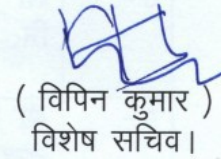 ( विपिन कुमार )
विशेष सचिव।